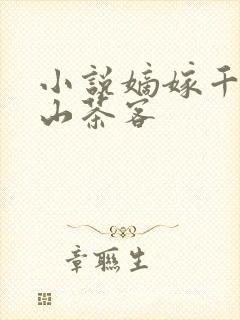 小说嫡嫁千
山茶客
章联生